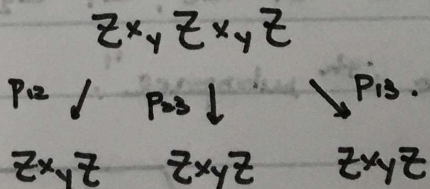 Z ×_Y Z ×_Y Z
P₁₂ ↙ P₂₃ ↓ ↘ P₁₃.
Z ×_Y Z Z ×_Y Z Z ×_Y Z